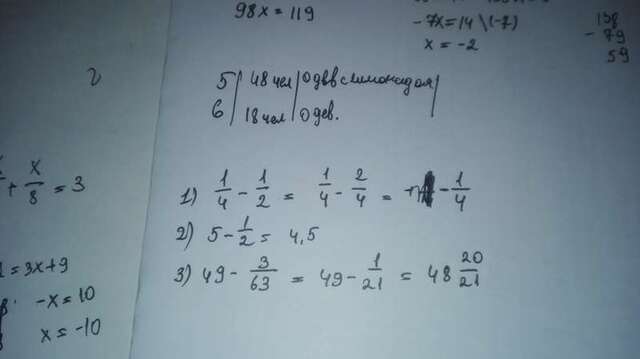 98x = 119
-7x = 14 \(-7)
x = -2
138
- 79
59
5 | 48 чел | 0 дев с лимонадом
6 | 18 чел | 0 дев.
x/8 = 3
1) 1/4 - 1/2 = 1/4 - 2/4 = - 1/4
2) 5 - 1/2 = 4,5
3) 49 - 3/63 = 49 - 1/21 = 48 20/21
= 3x+9
-x = 10
x = -10